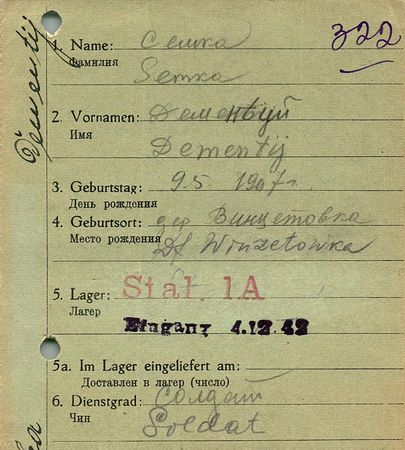 322
Dementij
1. Name: Семка
Фамилия
Semka
2. Vornamen: Дементий
Имя
Dementij
3. Geburtstag: 9.5. 1907 г.
День рождения
4. Geburtsort: дер Винцетовка
Место рождения
Df Winzetowka
5. Lager: Stal. IA
Лагер
Eingang 4.12.42
5a. Im Lager eingeliefert am:
Доставлен в лагер (число)
6. Dienstgrad: солдат
Чин
Soldat